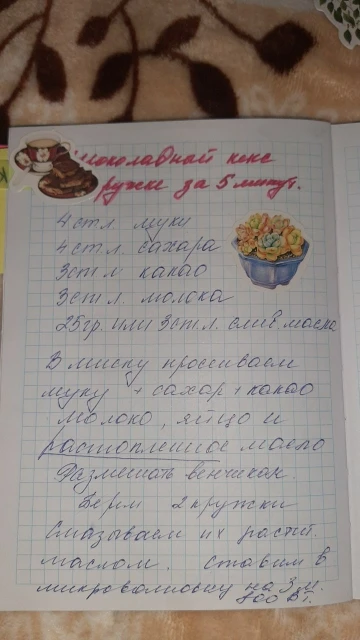 Шоколадной кекс
кружке за 5 минут.
4 ст л муки
4 ст. л. сахара
3 ст л какао
3 ст л. молока
25гр. или 3 ст. л. слив масла
В миску просеиваем
муку + сахар + какао
молоко, яйцо и
растопленное масло
Размешать венчиком.
Берём 2 кружки
Смазываем их растит.
маслом. Ставим в
микроволновку на 3 м.
800 Вт.